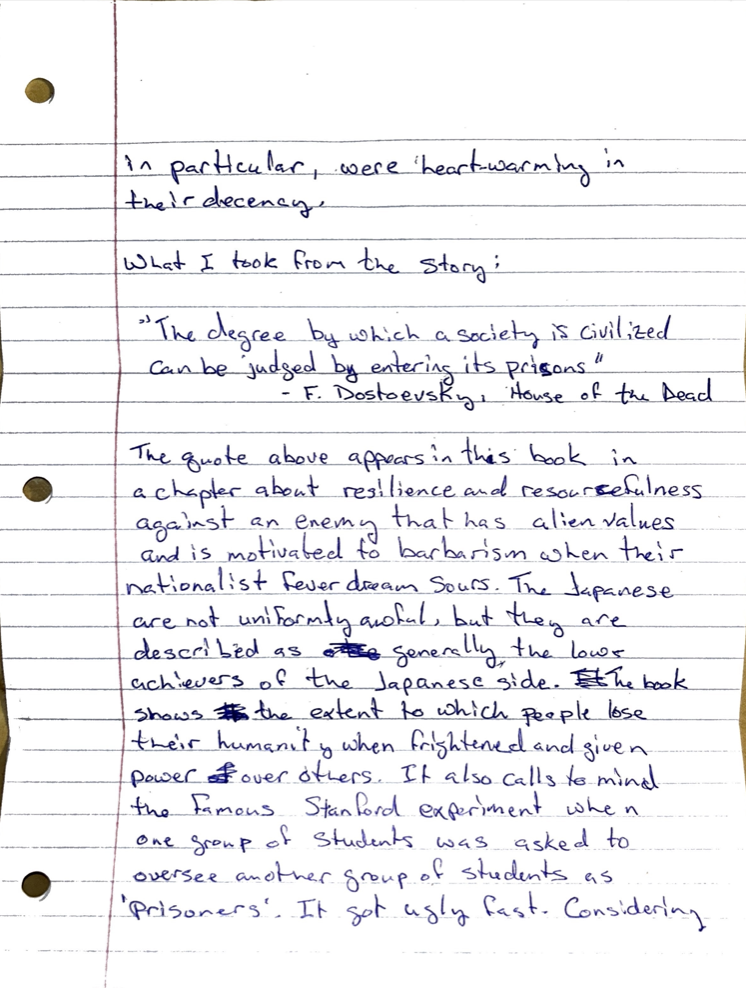 in particular, were heart-warming in
their decency.
What I took from the story:
"The degree by which a society is civilized
can be judged by entering its prisons"
- F. Dostoevsky, House of the Dead
The quote above appears in this book in
a chapter about resilience and resourcefulness
against an enemy that has alien values
and is motivated to barbarism when their
nationalist fever dream sours. The Japanese
are not uniformly awful, but they are
described as generally, the low
achievers of the Japanese side. The book
shows the extent to which people lose
their humanity when frightened and given
power over others. It also calls to mind
the famous Stanford experiment when
one group of students was asked to
oversee another group of students as
'prisoners'. It got ugly fast. Considering